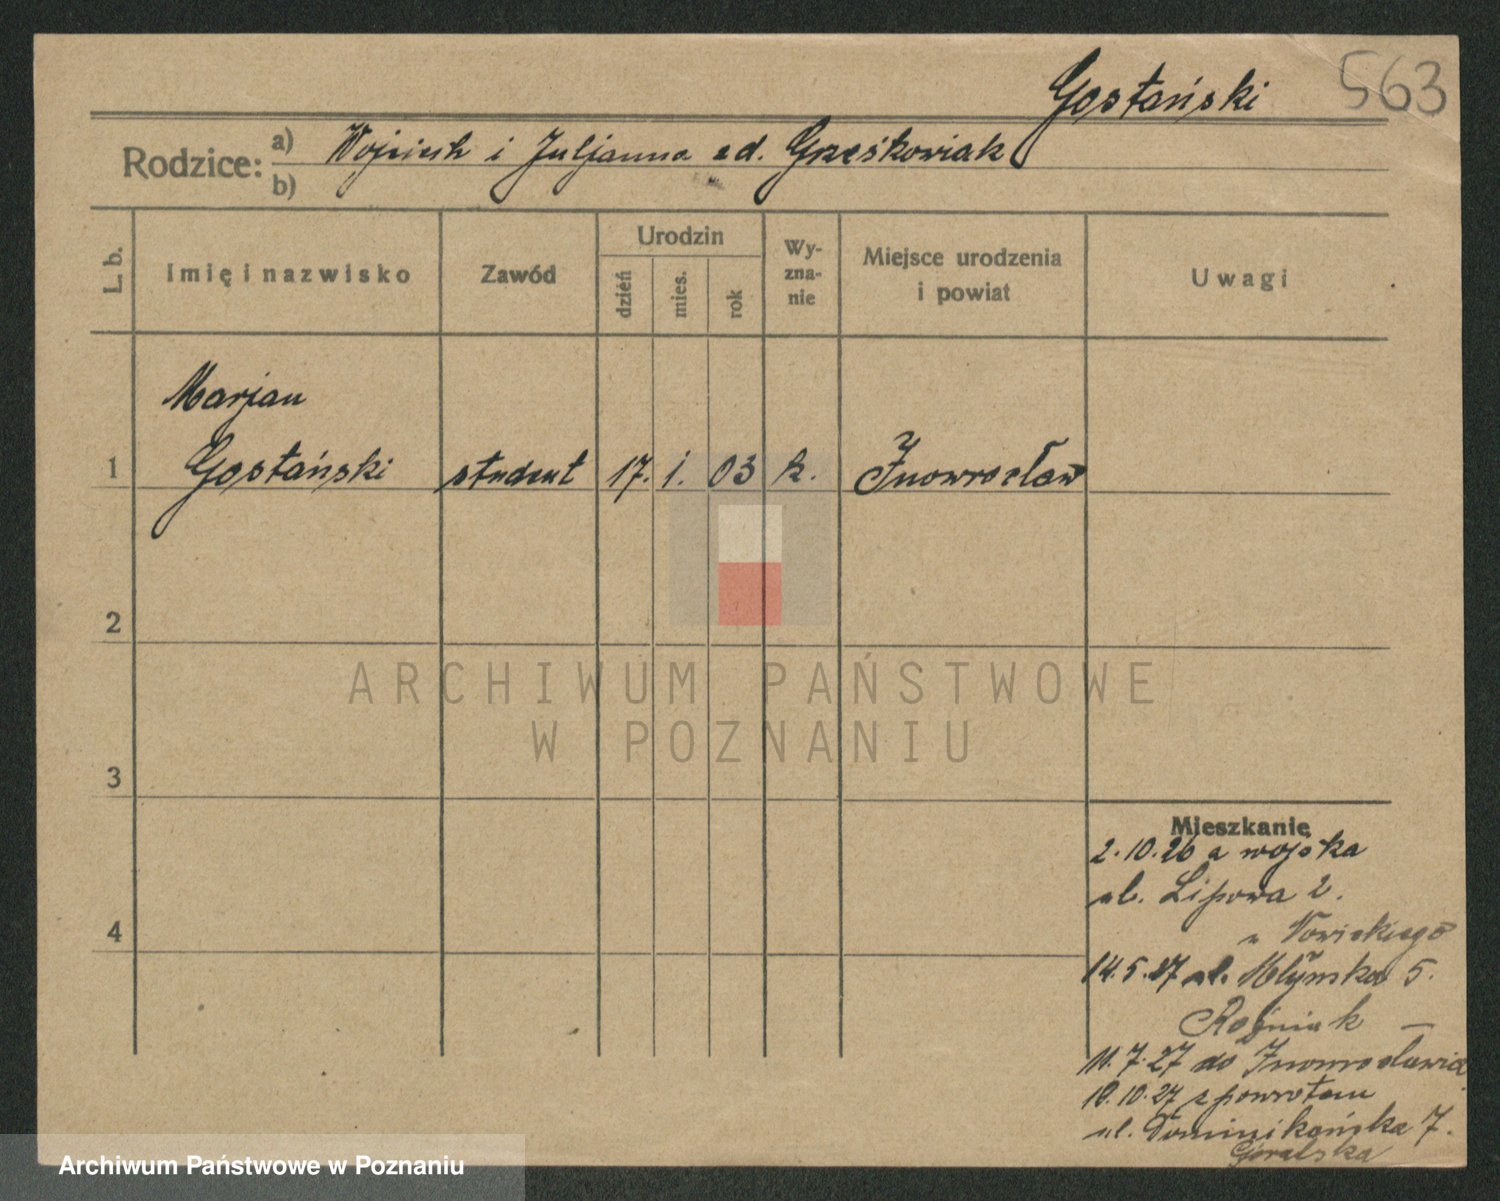 Gostański 563
Rodzice: a) Wojciech i Juljanna zd. Grześkowiak
b)
L. b. Imię i nazwisko Zawód Urodzin dzień mies. rok Wy-zna-nie Miejsce urodzenia i powiat Uwagi
Marjan
1 Gostański student 17. 1. 03 k. Inowrocław
2
ARCHIWUM PAŃSTWOWE
W POZNANIU
3
Mieszkanie
2.10.26 z wojska
ul. Lipowa 2.
u Nowickiego
4
14.5.27 ul. Młyńska 5.
11.7.27 do Inowrocławia
10.10.27 z powrotem
ul. Dominikańska 7.
Góralska
Archiwum Państwowe w Poznaniu